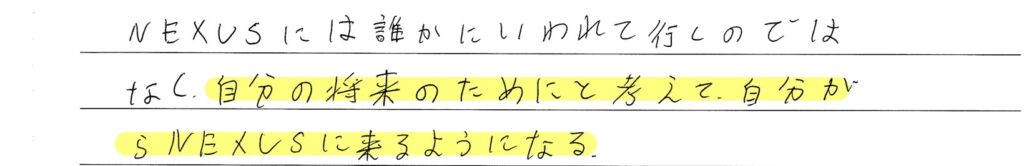 NEXUSには誰かにいわれて行くのでは
なく、自分の将来のためにと考えて、自分か
らNEXUSに来るようになる。